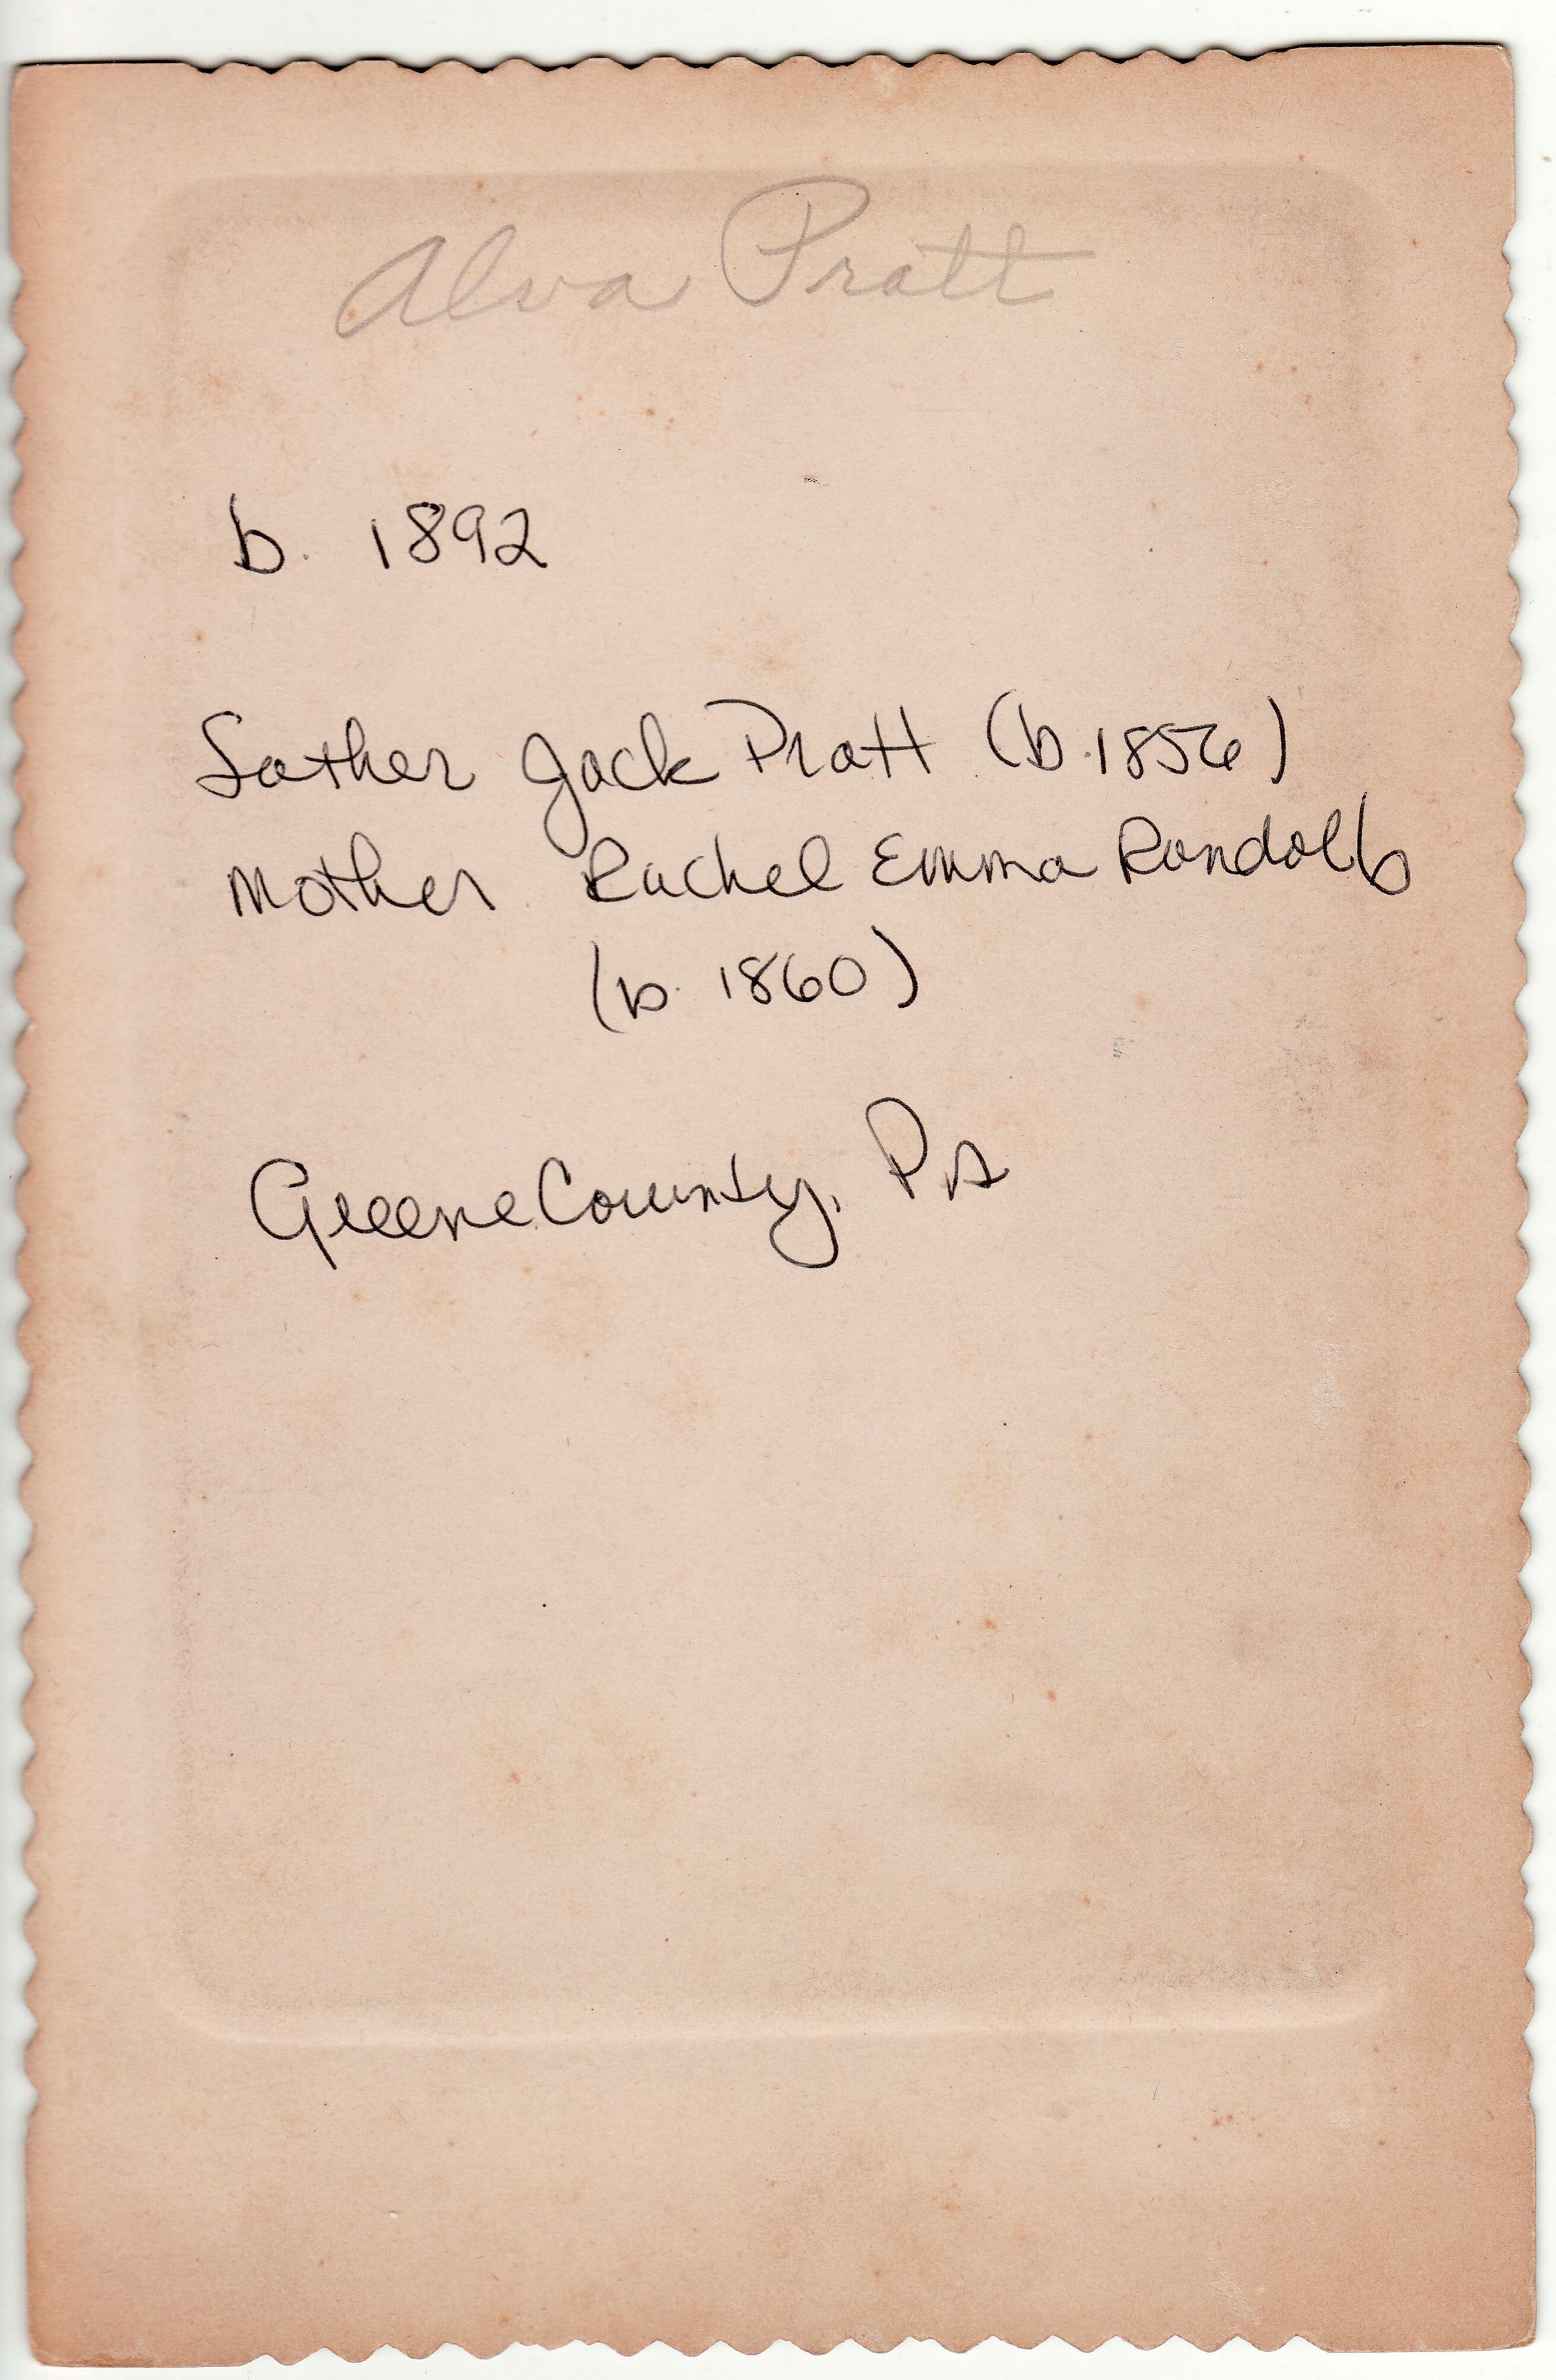 Alva Pratt
b. 1892
Father Jack Pratt (b. 1856)
Mother Rachel Emma Randolph
(b. 1860)
Greene County, PA